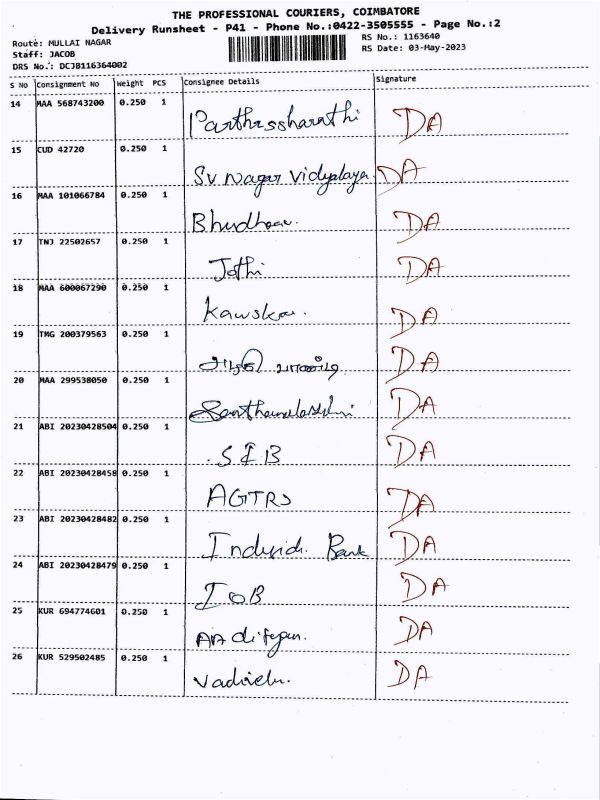 THE PROFESSIONAL COURIERS, COIMBATORE
Delivery Runsheet - P41 - Phone No.:0422-3505555 - Page No.:2
Route: MULLAI NAGAR RS No.: 1163640
Staff: JACOB RS Date: 03-May-2023
DRS No.: DCJB116364002
S No Consignment No Weight PCS Consignee Details Signature
14 MAA 568743200 0.250 1 DA
15 CUD 42720 0.250 1 SV Nagar Vidyalaya DA
16 MAA 101066784 0.250 1 DA
17 TNJ 22502657 0.250 1 Jothi DA
18 MAA 600067290 0.250 1 DA
19 TMG 200379563 0.250 1 DA
20 MAA 299538050 0.250 1 DA
21 ABI 20230428504 0.250 1 SIB DA
22 ABI 20230428458 0.250 1 DA
23 ABI 20230428482 0.250 1 Bank DA
24 ABI 20230428479 0.250 1 IOB DA
25 KUR 694774601 0.250 1 DA
26 KUR 529502485 0.250 1 Vadivelu. DA